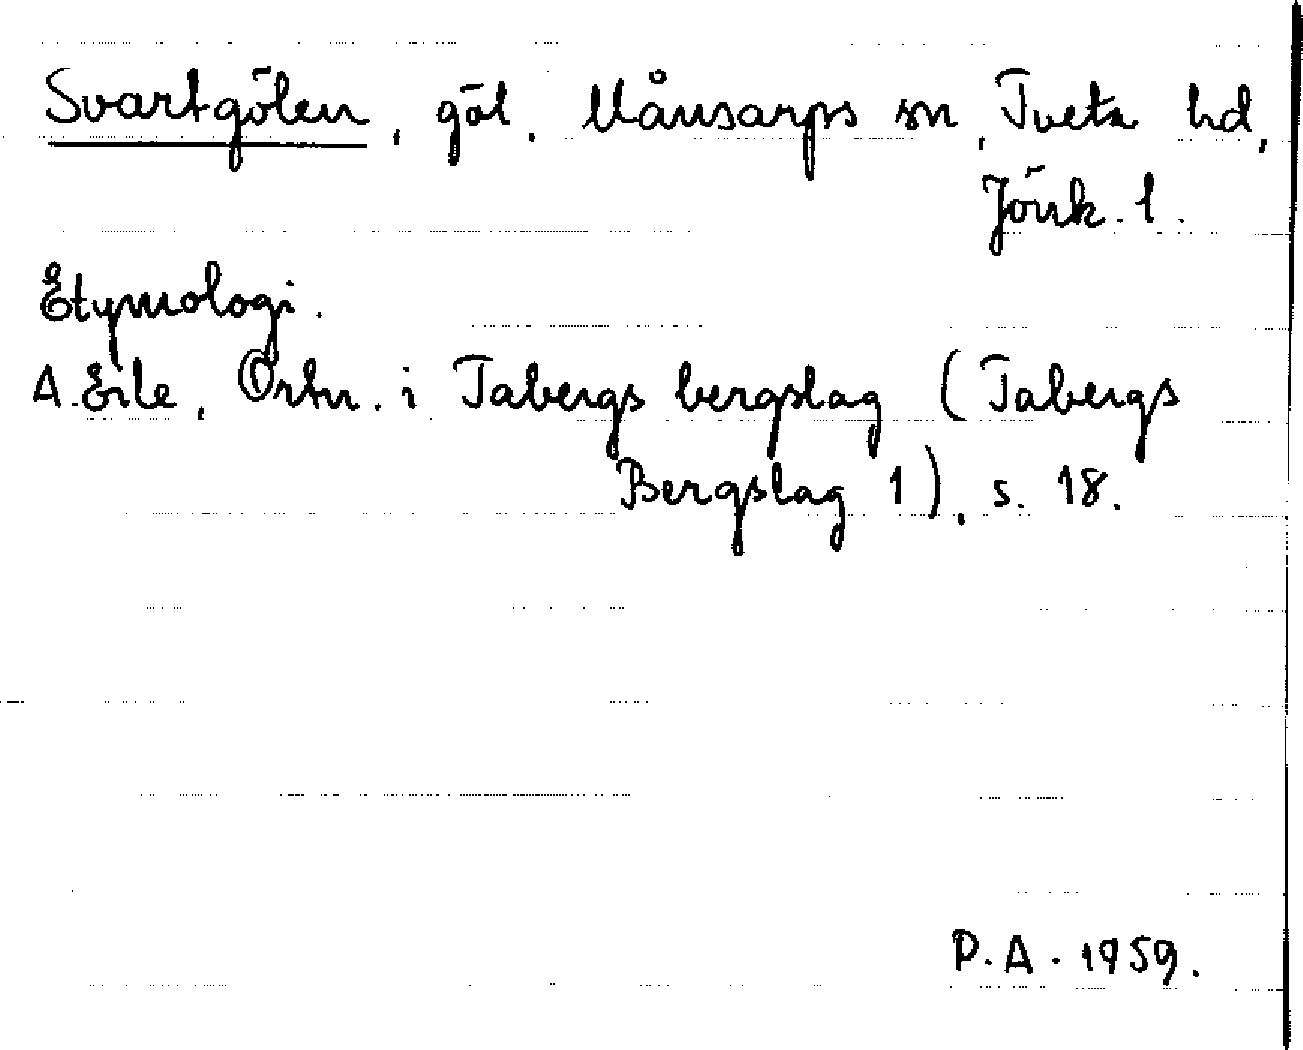 Svartgölen, göl, Månsarps sn, Tveta hd,
Jönk. l.
Etymologi.
A. Eile, Ortn. i Tabergs bergslag (Tabergs
Bergslag 1), s. 18.
P. A. 1959.